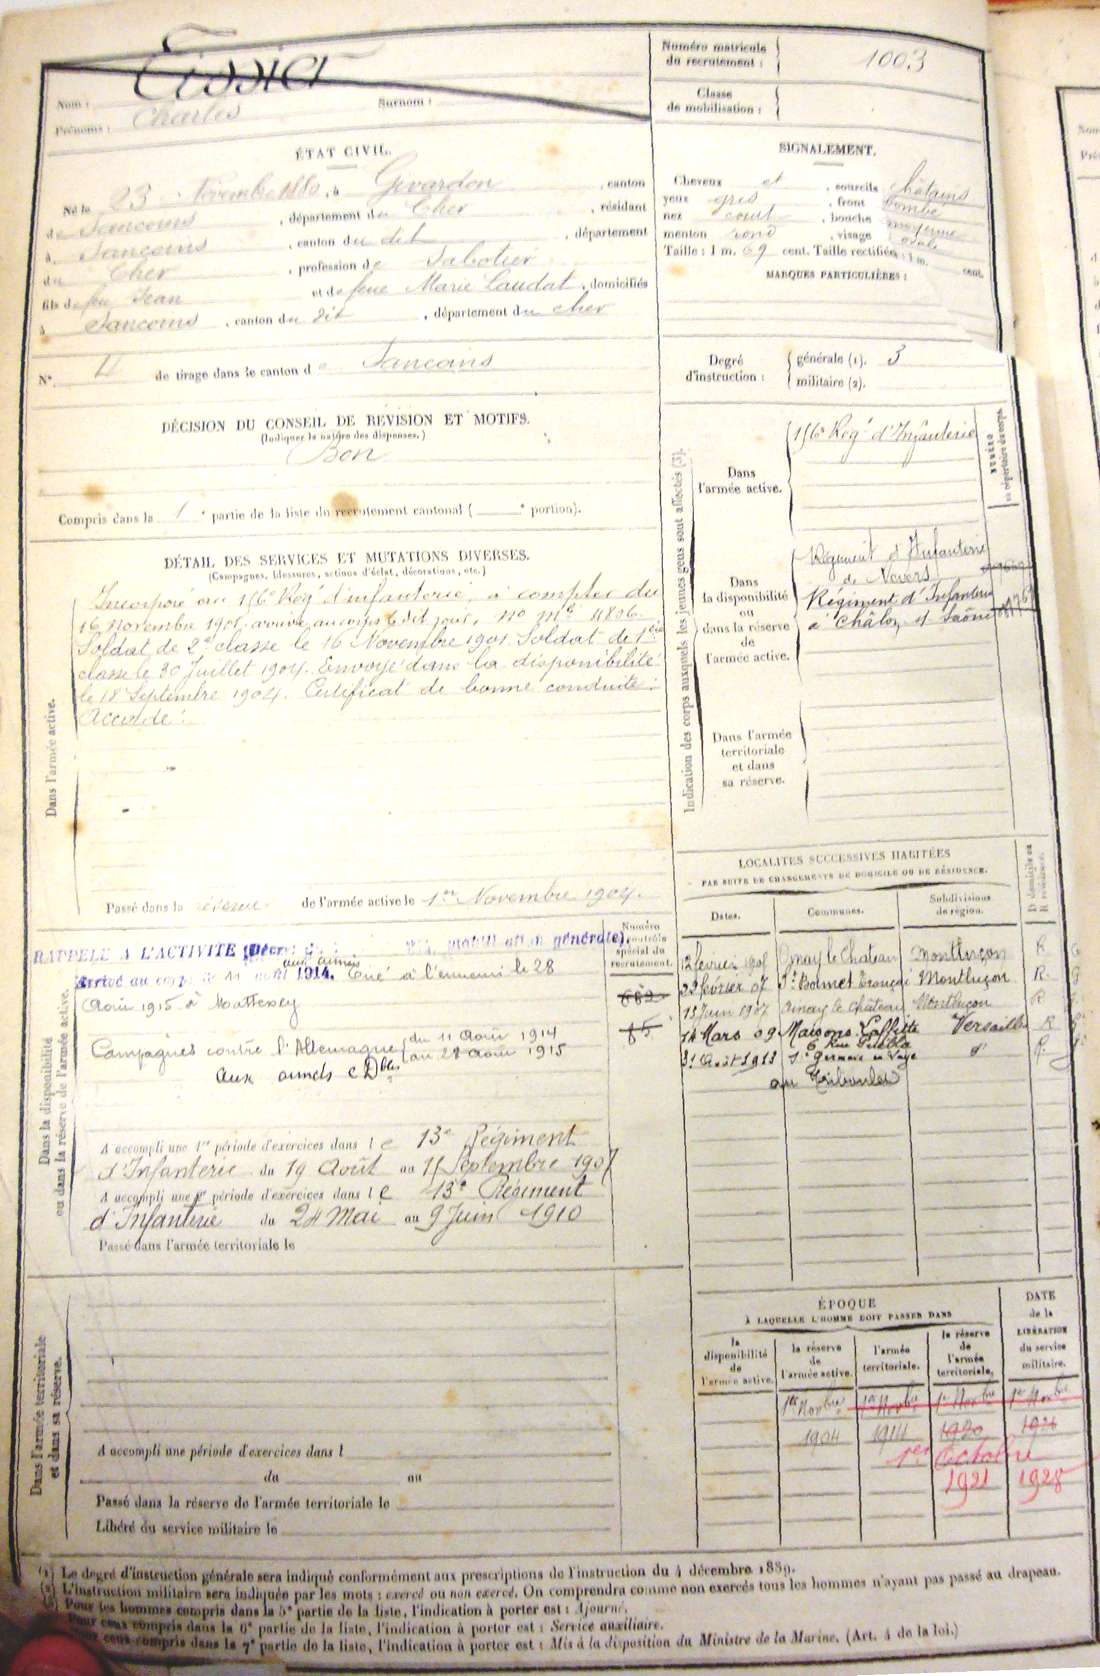 Tissier
Nom :
Surnom :
Prénoms : Charles
Numéro matricule du recrutement : 1003
Classe de mobilisation :
ÉTAT CIVIL.
Né le 23 Novembre 1880, à Givardon, canton
de Sancoins, département du Cher, résidant
à Sancoins, canton du dit, département
du Cher, profession de Sabotier
fils de feu Jean et de feue Marie Laudat, domiciliés
à Sancoins, canton du dit, département du Cher
N° 4 de tirage dans le canton de Sancoins
SIGNALEMENT.
Cheveux et, sourcils châtains
yeux gris, front bombé
nez court, bouche moyenne
menton rond, visage ovale
Taille : 1 m. 69 cent. Taille rectifiée : 1 m. cent.
MARQUES PARTICULIÈRES :
Degré d'instruction : générale (1). 3
militaire (2).
DÉCISION DU CONSEIL DE RÉVISION ET MOTIFS.
(Indiquer la nature des dispenses.)
Bon
Compris dans la 1e partie de la liste du recrutement cantonal ( e portion).
DÉTAIL DES SERVICES ET MUTATIONS DIVERSES.
(Campagnes, blessures, actions d'éclat, décorations, etc.)
Dans l'armée active.
Incorporé au 156e Rég. d'infanterie, à compter du
16 novembre 1901, arrivé au corps le dit jour, no mle 4806.
Soldat de 2e classe le 16 Novembre 1901. Soldat de 1ère
classe le 30 Juillet 1904. Envoyé dans la disponibilité
le 18 Septembre 1904. Certificat de bonne conduite :
Accordé.
Passé dans la réserve de l'armée active le 1er Novembre 1904.
Indication des corps auxquels les jeunes gens sont affectés (3).
NUMÉRO au répertoire du corps.
Dans l'armée active.
156e Rég.t d'Infanterie
Dans la disponibilité ou dans la réserve de l'armée active.
Régiment d'Infanterie
de Nevers
Régiment d'Infanterie
à Châlon s/ Saône
Dans l'armée territoriale et dans sa réserve.
LOCALITÉS SUCCESSIVES HABITÉES
PAR SUITE DE CHANGEMENTS DE DOMICILE OU DE RÉSIDENCE.
Dates. Communes. Subdivisions de région. D domicile ou R résidence.
12 février Ainay le Chateau Montluçon R
22 février 07 St Bonnet Tronçais Montluçon R.
13 Juin 1907 Ainay le Château Montluçon R
14 Mars 09 Maisons Laffitte Versailles R
6 Rue Puebla
31 Août 1913 St Germain en Laye d° R.
Dans la disponibilité ou dans la réserve de l'armée active.
Numéro au contrôle spécial du recrutement.
RAPPELÉ A L'ACTIVITÉ (Décret mobilisation générale).
aux armées
Arrivé au corps le 11 août 1914. Tué à l'ennemi le 28
Août 1915 à Mattexey
Campagnes contre l'Allemagne du 11 Août 1914
au 28 Août 1915
aux armées
A accompli une 1re période d'exercices dans le 13e Régiment
d'Infanterie du 19 Août au 15 Septembre 1907
A accompli une 2e période d'exercices dans le 13e Régiment
d'Infanterie du 24 Mai au 9 Juin 1910
Passé dans l'armée territoriale le
Dans l'armée territoriale et dans sa réserve.
A accompli une période d'exercices dans l
du au
Passé dans la réserve de l'armée territoriale le
Libéré du service militaire le
ÉPOQUE
À LAQUELLE L'HOMME DOIT PASSER DANS
DATE de la LIBÉRATION du service militaire.
la disponibilité de l'armée active. la réserve de l'armée active. l'armée territoriale. la réserve de l'armée territoriale.
1er Novbre 1er Novbre 1er Novbre 1er Novbre
1904 1914 1920 1926
1er Octobre
1921 1928
Le degré d'instruction générale sera indiqué conformément aux prescriptions de l'instruction du 4 décembre 1889.
L'instruction militaire sera indiquée par les mots : exercé ou non exercé. On comprendra comme non exercés tous les hommes n'ayant pas passé au drapeau.
Pour les hommes compris dans la 5e partie de la liste, l'indication à porter est : Ajourné.
Pour ceux compris dans la 6e partie de la liste, l'indication à porter est : Service auxiliaire.
Pour ceux compris dans la 7e partie de la liste, l'indication à porter est : Mis à la disposition du Ministre de la Marine. (Art. 4 de la loi.)